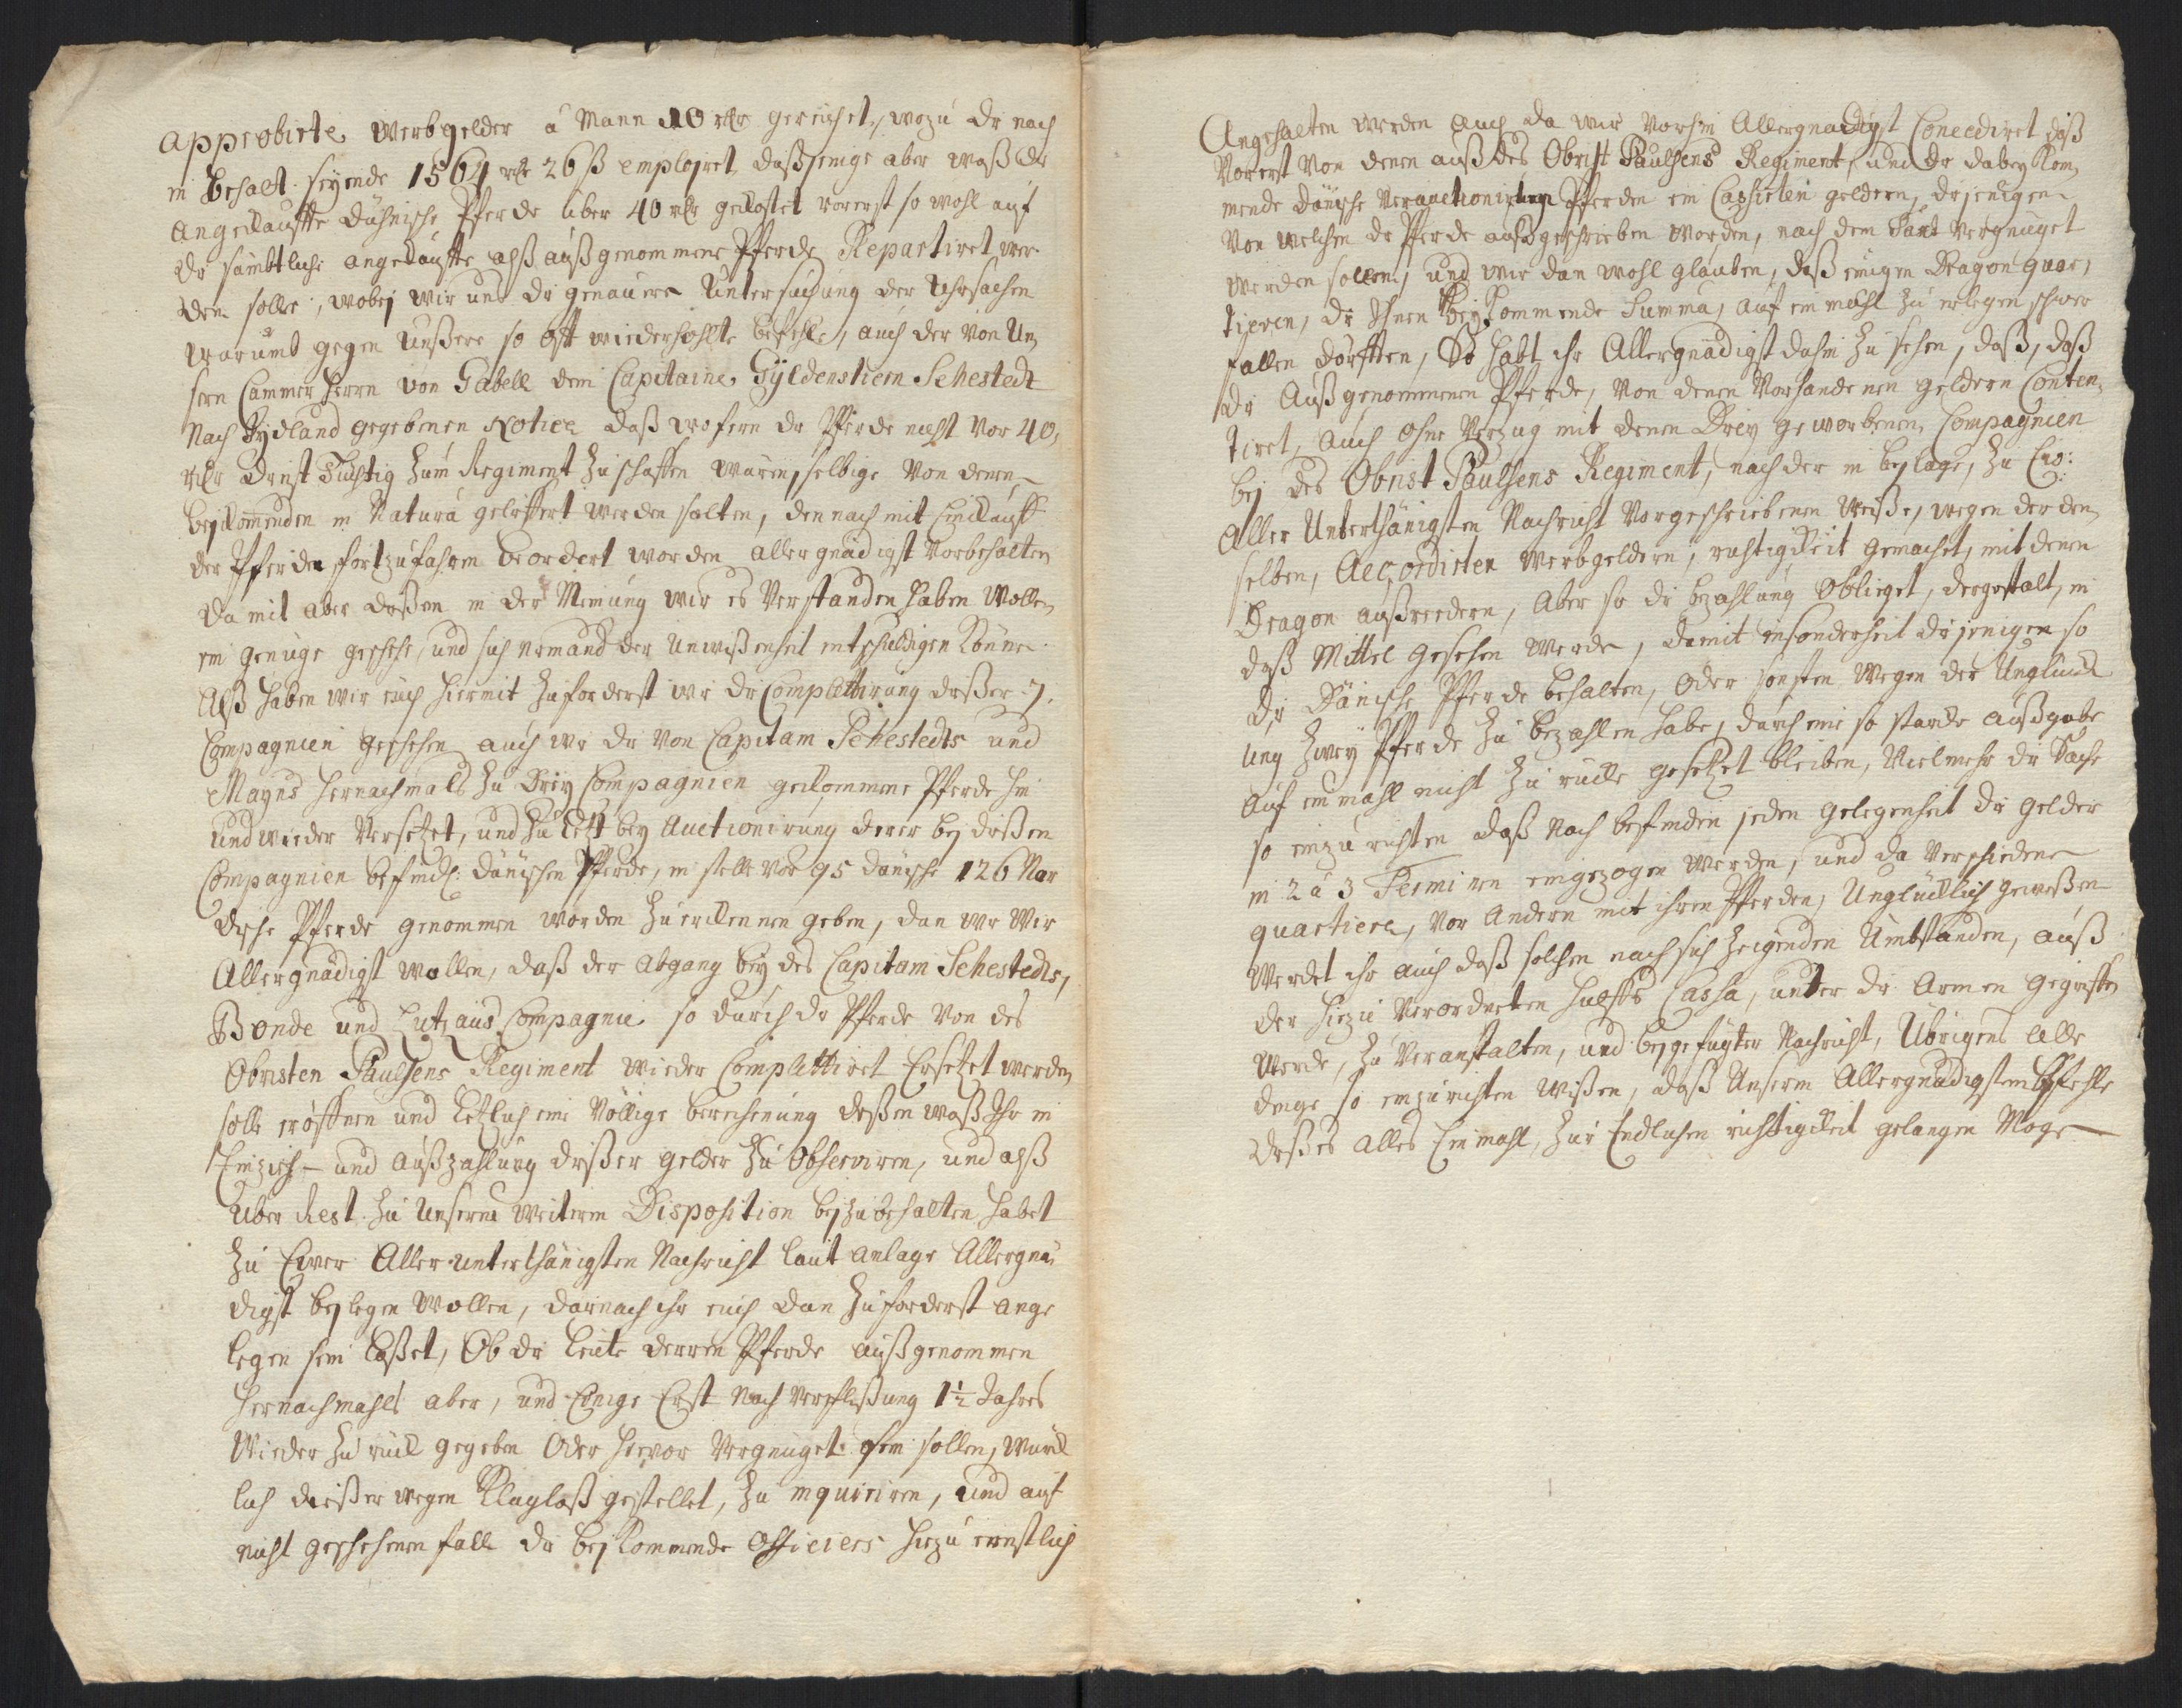 approbirte werbgelder a Mann 10 rlr gereichet, wozu die nach
in behalt seyende 1564 rlr 26 ß emplojret, daßjenige aber waß die
angekauffte dähnische Pferde uber 40 rlr gekostet vorerst so wohl auf
die sämbtliche angekauffte alß außgenommene Pferde Repartiret wer
den solle, wobej wir uns die genauere Untersuchung der Uhrsachen
warumb gegen unßere so offt wiederhohlte befehle, auch der von Un
sern Cammerherrn von Gabell dem Capitaine Gyldenstiern Sehestedt
nach Jydland gegebenen Notice daß wofern die Pferde nicht vor 40
rlr dienst Tüchtig zum Regiment zu schaffen wären, selbige von denen
bejkommenden in Natura geliffert werden solten, dennoch mit Einkauff
der Pferden fortzufahren beordert worden allergnädigst vorbehalten
Damit aber dießen in der Meinung wie wir es verstanden haben wollen
ein genüge geschehe, und sich niemand der unwißenheit entschuldigen könne
Alß haben wir euch hiermit zuforderst wie die Complettirung dießer 7.
Compagnien geschehen auch wie die von Capitain Sehestedts und
Mayns hernachmals zu Drey Compagnien gekommene Pferde hin
und wieder versetzet, und zu letzt bey Auctionirung derer bej dießen
Compagnien befindl: dänischen Pferde, in stelle vor 95 dänische 126 Nor
dische Pferde genommen worden zu erkennen geben, dan wie wir
Allergnädigst wollen, daß der abgang bey des Capitain Sehestedts,
Bonde und Lützaus Compagnie so durch die Pferde von des
Obristen Paulsens Regiment wieder Complettiret Ersetzet werden
solle eröffnen und letzlich eine völlige berechnung deßen waß Ihr in
Einzieh- und außzahlung dießer gelder zu Observiren, und alß
uber Rest zu unserer weiteren Disposition bejzubehalten habet
zu Eurer Allerunterthänigsten Nachricht laut anlage Allergnä
digst bejlegen wollen, darnach ihr euch dan zuforderst ange
legen sein laßet, Ob die leute deren Pferde außgenommen
hernachmahls aber, und Einige Erst nach verfließung 1½ Jahres
wieder zurück gegeben oder hievor vergnüget sein sollen, würck
lich dießerwegen Klagloß gestellet, zu inquiriren, und auf
nicht geschehenen fall die bejkommende Officiers hiezu ernstlich
Angehalten werden auch da wir vorhin Allergnädigst Concediret daß
vorerst von denen auß des Obrist Paulsens Regiment, und die dabey kom
mende dänische verauctionirten Pferden ein Cassirten geldern, diejenigen
von welchen die Pferde außgeschrieben worden, nach dem Taxt vergnüget
werden sollen, und wir dan wohl glauben, daß einigen Dragon quar,
tieren, die Ihnen bejkommende Summa, auf ein mahl zu erlegen schwer
fallen dörfften, So habt ihr Allergnädigst dahin zu sehen, daß, daß
die Außgenommenen Pferde, von denen vorhandenen geldern Conten
tiret, auch ohne Verzug mit denen Drey geworbenen Compagnien
bej des Obrist Paulsens Regiment, nach der in bejlage, zu Ew:
Aller Unterthänigsten Nachricht vorgeschriebenen Weiße, wegen der den
selben, Accordirten werbgeldern, richtigkeit gemachet, mit denen
Dragon außreedern, aber so die bezahlung Oblieget, dergestalt, in
daß Mittel gesehen werde, damit insonderheit diejenigen so
die Dänische Pferde behalten, oder sonsten wegen der Unglück
ung zwey Pferde zu bezahlen habe, durch eine so starcke außgabe
auf einmahl nicht zu rücke gesetzet bleiben, vielmehr die Sache
so einzurichten daß nach befinden jeden gelegenheit die gelder
in 2 a 3 Terminen eingezogen werden, und da verschiedene
quartiere, vor andern mit ihren Pferden, Unglücklich geweßen
Werdet ihr auch daß solchen nach sich zeigenden Umbständen, auß
der hiezu verordneten hülffs Cassa, unter die Armen gegriffen
werde, zu veranstalten, und bejgefügter Nachricht, Übrigens alle
dinge so einzurichten wißen, daß Unserm Allergnädigsten Befehle
dießes alles Einmahl, zur Endlichen richtigkeit gelangen Moge